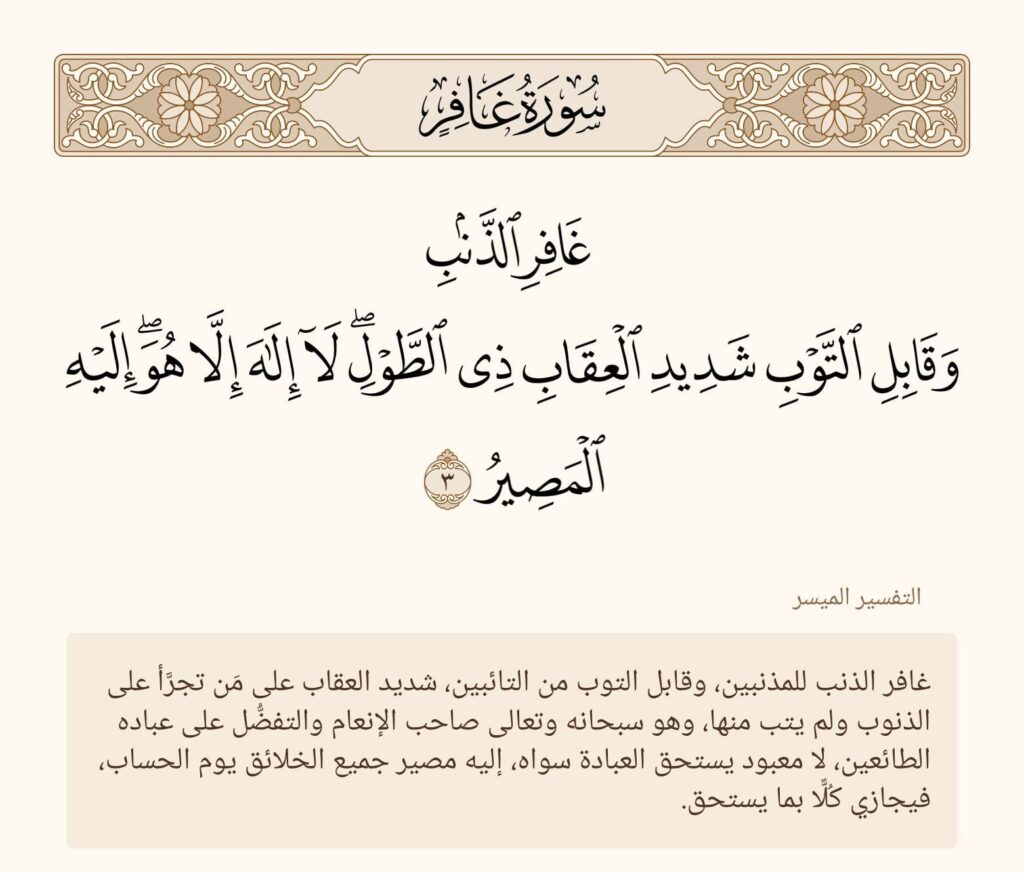 سُورَةُ غَافِرٍ
غَافِرِ ٱلذَّنۢبِ
وَقَابِلِ ٱلتَّوۡبِ شَدِيدِ ٱلۡعِقَابِ ذِى ٱلطَّوۡلِۖ لَآ إِلَٰهَ إِلَّا هُوَۖ إِلَيۡهِ
ٱلۡمَصِيرُ ٣
التفسير الميسر
غافر الذنب للمذنبين، وقابل التوب من التائبين، شديد العقاب على مَن تجرَّأ على
الذنوب ولم يتب منها، وهو سبحانه وتعالى صاحب الإنعام والتفضُّل على عباده
الطائعين، لا معبود يستحق العبادة سواه، إليه مصير جميع الخلائق يوم الحساب،
فيجازي كُلًّا بما يستحق.